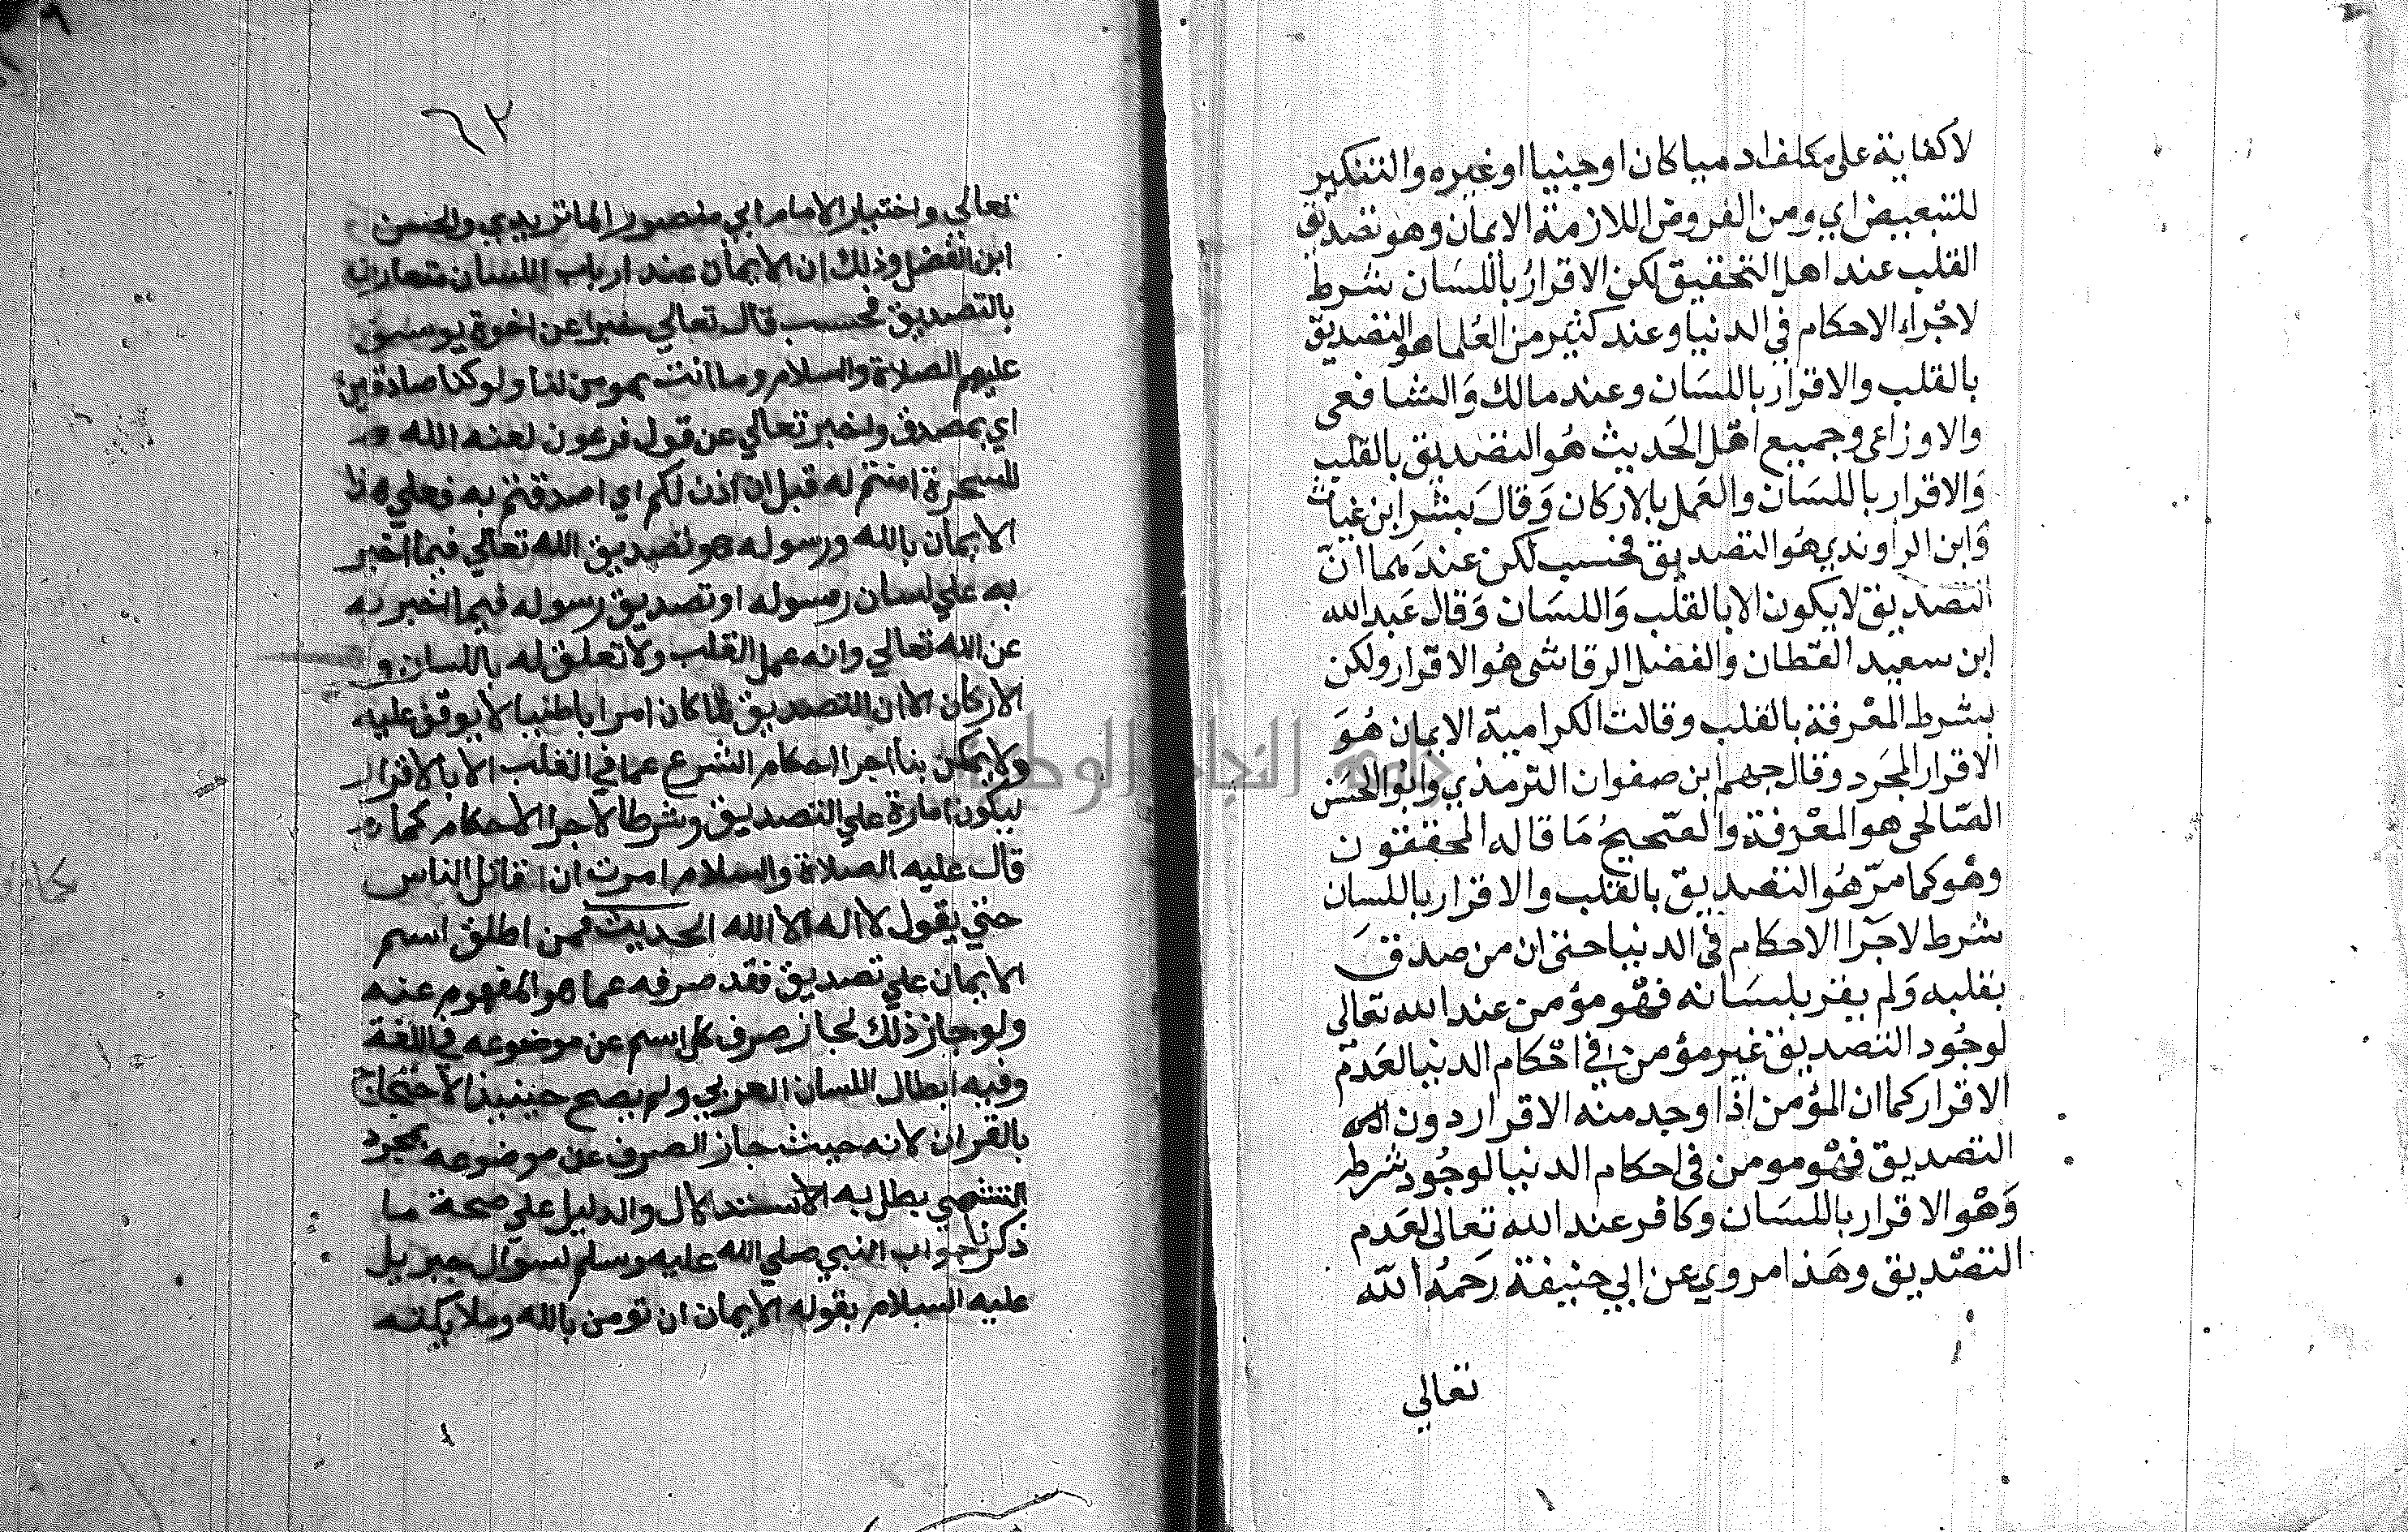 لاكفاية على مكلف ادمياكان اوجنيا اوغيره والتنكير
للتبعيض اي ومن الفروض اللازمة الايمان وهو تصديق
القلب عند اهل التحقيق لكن الاقرار باللسان شرط
لاجراء الاحكام في الدنيا وعند كثير من العلما هو التصديق
بالقلب والاقرار باللسان وعند مالك والشافعى
والاوزاعى وجميع اهل الحديث هو التصديق بالقلب
والاقرار باللسان والعمل بالاركان وقال بشر ابن غياث
وابن الراوندي هو التصديق فحسب لكن عندهما ان
التصديق لايكون الا بالقلب واللسان وقال عبد الله
ابن سعيد القطان والفضل الرقاشى هو الاقرار ولكن
بشرط المعرفة بالقلب وقالت الكرامية الايمان هو
الاقرار المجرد وقال جهم ابن صفوان الترمذي وابو الحسن
الصالحى هو المعرفة والصحيح ما قاله المحققون
وهو كما مر هو التصديق بالقلب والاقرار باللسان
شرط لاجرا الاحكام فى الدنيا حتى ان من صدق
بقلبه ولم يقر بلسانه فهو مؤمن عند الله تعالى
لوجود التصديق غير مؤمن في احكام الدنيا لعدم
الاقرار كما ان المؤمن اذا وجد منه الاقرار دون
التصديق فهو مومن فى احكام الدنيا لوجود شرطه
وهو الاقرار باللسان وكافر عند الله تعالى لعدم
التصديق وهذا مروي عن ابي حنيفة رحمه الله
تعالي
٦٢
تعالي واختيار الامام ابي منصور الماتريدي والحسن
ابن الفضل وذلك ان الايمان عند ارباب اللسان متعارف
بالتصديق فحسب قال تعالي خبرا عن اخوة يوسف
عليهم الصلاة والسلام وما انت بمومن لنا ولو كنا صادقين
اي بمصدق واخبر تعالي عن قول فرعون لعنه الله
للسحرة امنتم له قبل ان اذن لكم اي اصدقتم به فعلي هذا
الايمان بالله ورسوله هو تصديق الله تعالي فيما اخبر
به علي لسان رسوله او تصديق رسوله فيما اخبر به
عن الله تعالي وانه عمل القلب ولا تعلق له باللسان و
الاركان الا ان التصديق لما كان امرا باطنيا لا يوقف عليه
ولا يمكن بنا اجرا احكام الشرع عما في القلب الا بالاقرار
ليكون امارة علي التصديق وشرطا لاجرا الاحكام كما
قال عليه الصلاة والسلام امرت ان اقاتل الناس
حتي يقول لا اله الا الله الحديث فمن اطلق اسم
الايمان علي تصديق فقد صرفه عما هو المفهوم عنه
ولو جاز ذلك لجاز صرف كل اسم عن موضوعه في اللغة
وفيه ابطال اللسان العربي ولم يصح حينيذ الاحتجاج
بالقران لانه حيث جاز الصرف عن موضوعه بمجرد
التشهي يطل به الاستدلال والدليل علي صحة ما
ذكرنا جواب النبي صلي الله عليه وسلم لسوال جبريل
عليه السلام بقوله الايمان ان تومن بالله وملايكته